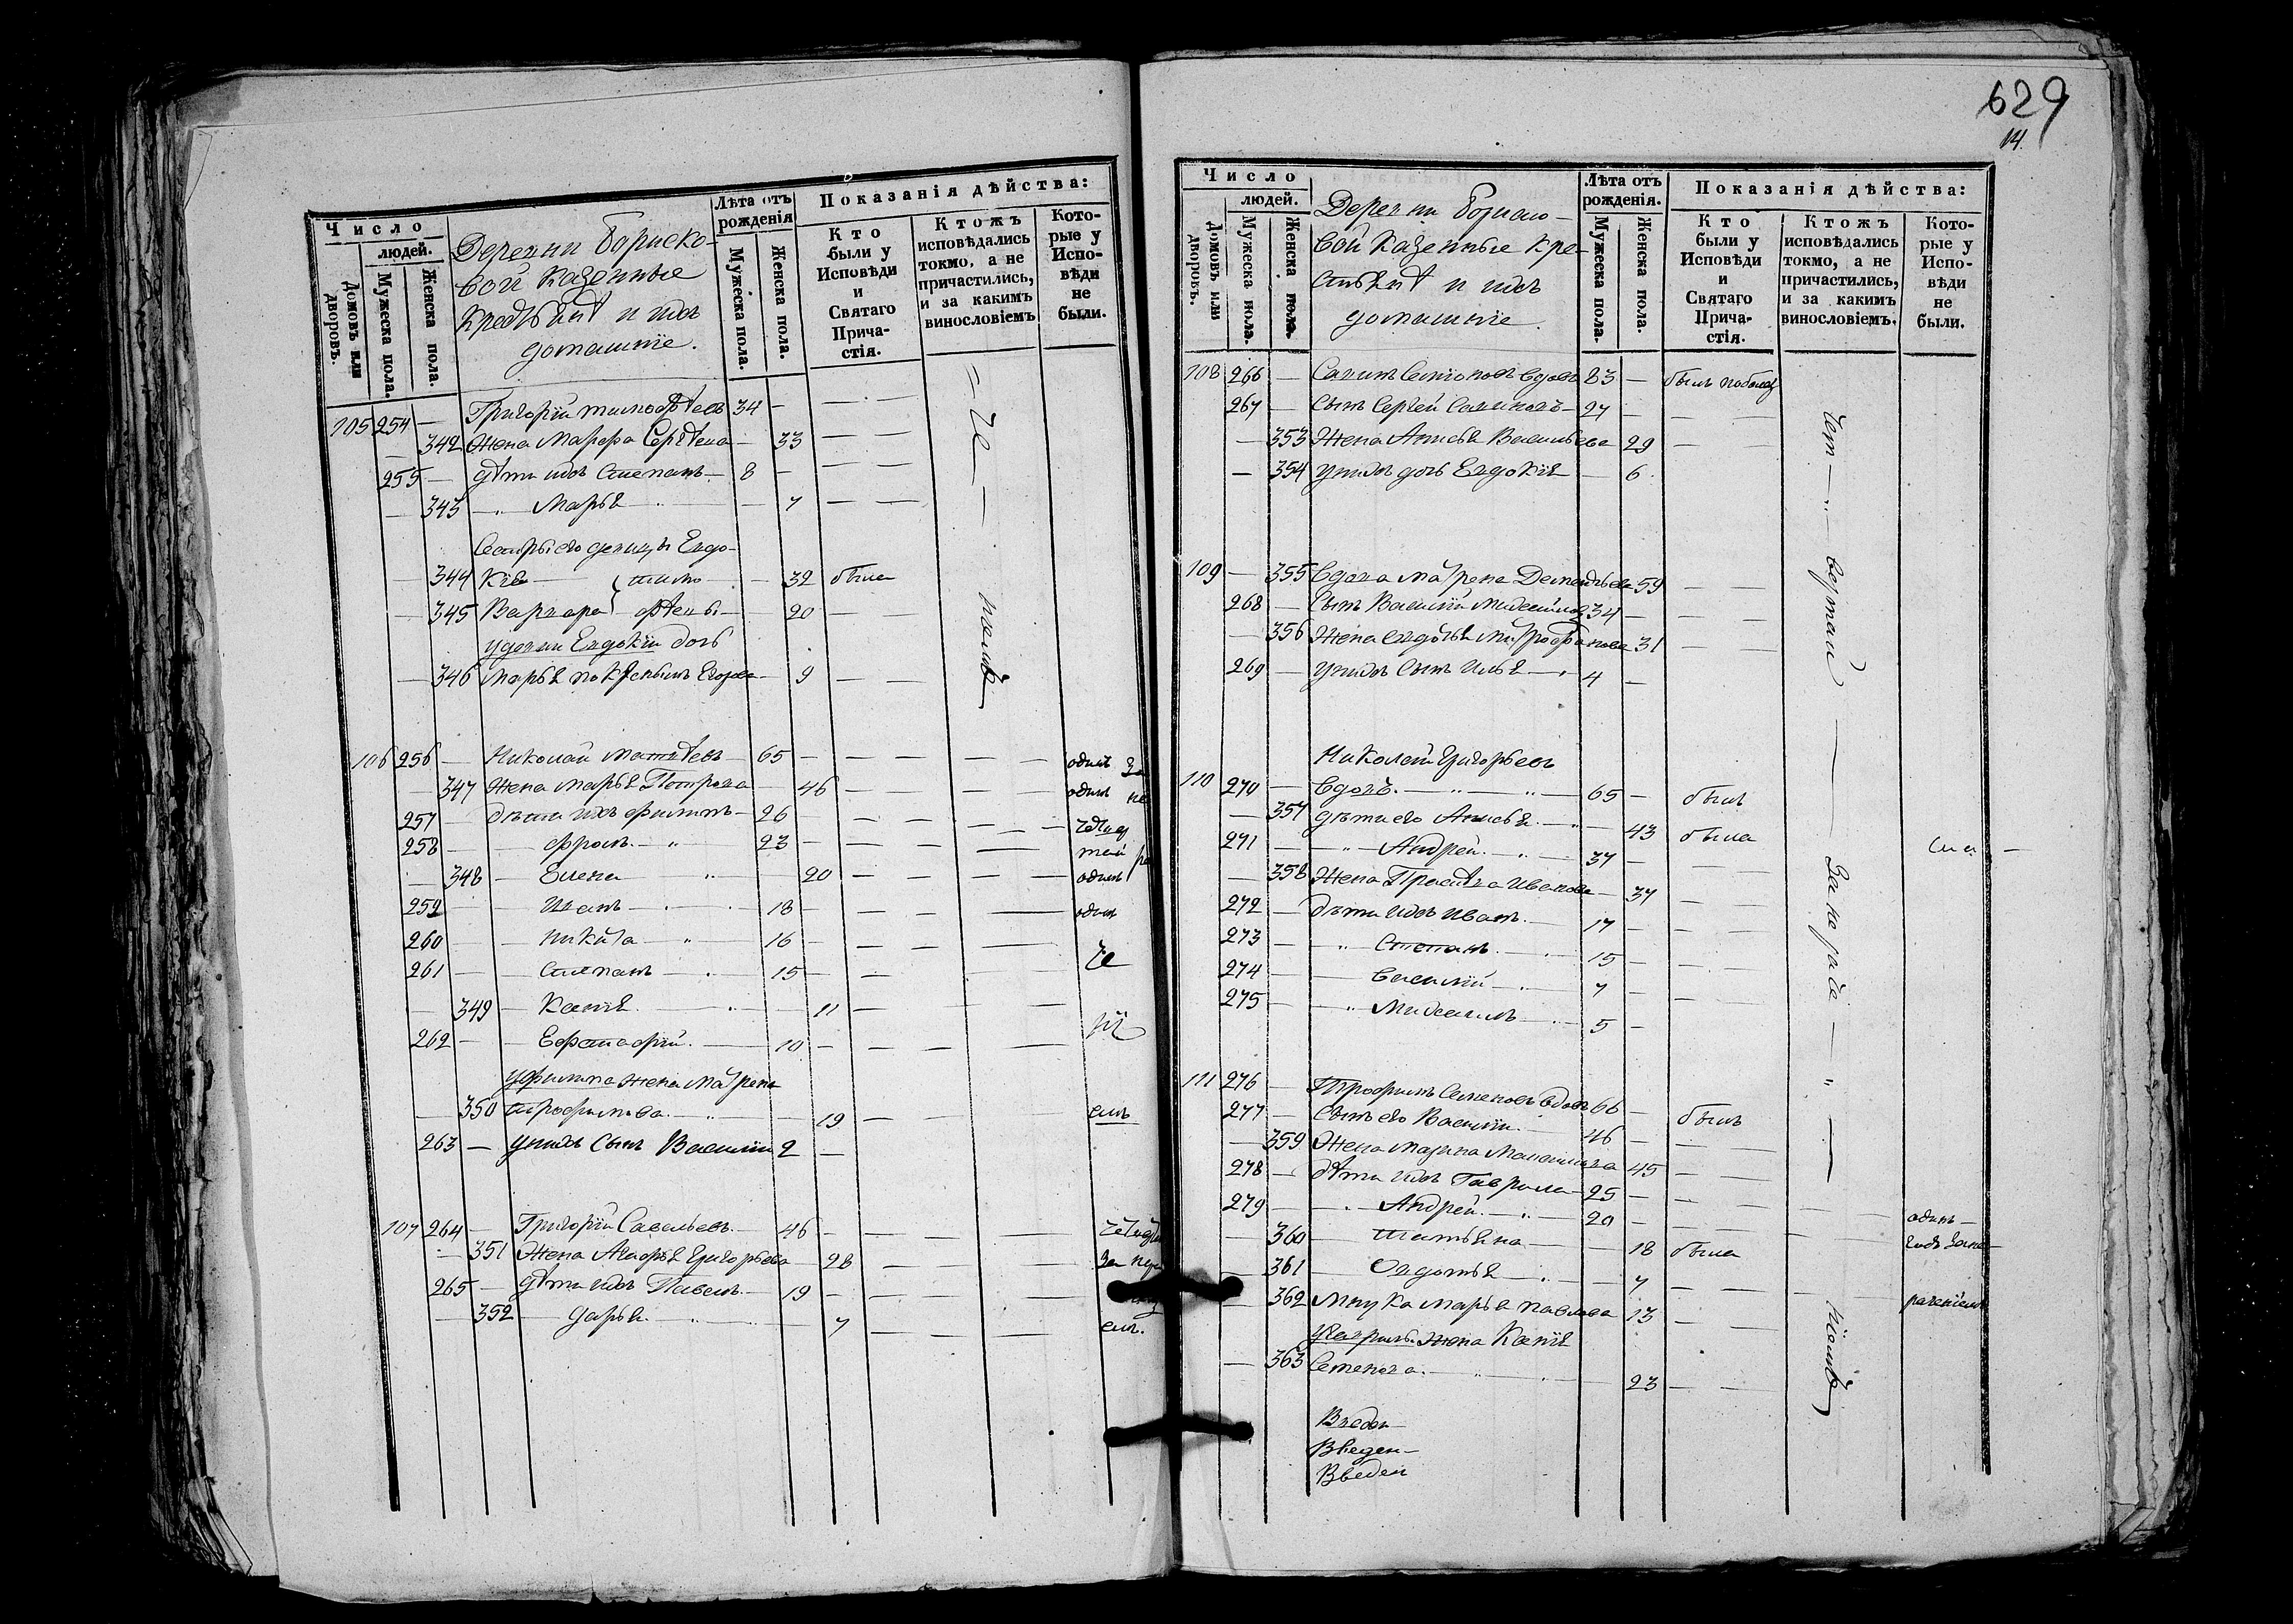 Число
людей.
Домовъ или дворовъ.
Мужеска пола.
Женска пола.
Деревни Бориско-
вой казенные
и ихъ
домашніе.
Лѣта отъ рожденія
Мужеска пола.
Женска пола.
Показанія дѣйства:
Кто были у Исповѣди и Святаго Прича-стія.
Ктожъ исповѣдались токмо, а не причастились, и за какимъ винословіемъ
Кото-рые у Испо-вѣди не были.
105 254 — Григорій Тимофѣевъ 34 —
— 342 Жена Марфа Сергѣева — 33
255 — дѣти ихъ Степанъ 8 —
— 343 — Марья — 7
Сестры его девицы Евдо-
— 344 кія — Тимо — 32 была
— 345 Варвара фѣевы — 20 —
у девки Евдокіи дочь
— 346 Марья по Егорова — 9
106 256 — Николай Матвѣевъ 65 —
— 347 Жена Марья Петрова — 46
257 — дѣти ихъ Филиппъ 26
258 — Фролъ 23
— 348 — Елена 20
259 — Иванъ 18
260 — Никита 16
261 — Степанъ 15
— 349 — Ксенія 11
262 — Евстафій 10
у Филиппа жена Матрена
— 350 Трофимова 19
263 — у нихъ сынъ Василій 2
107 264 — Григорій Савельевъ 46
— 351 Жена Агафья Григорьева 28
265 — дѣти ихъ Павелъ 19
— 352 — Дарья 7
629
14.
Число
людей.
Домовъ или дворовъ.
Мужеска пола.
Женска пола
Деревни Борисо-
вой казенные кре-
стьянѣ и ихъ
домашніе.
Лѣта отъ рожденія.
Мужеска пола.
Женска пола.
Показанія дѣйства:
Кто были у Исповѣди и Святаго Прича-стія.
Ктожъ исповѣдались токмо, а не причастились, и за какимъ винословіемъ.
Кото-рые у Испо-вѣди не были.
108 266 — вдовъ 83 — былъ
267 — Сынъ Сергей 27
— 353 Жена Анисья Васильева 29
— 354 у нихъ дочь Евдокія — 6
109 — 355 Вдова Матрена Дементьева 59
268 — Сынъ Василій 34
— 356 Жена Авдотья Митрофанова 31
269 — у нихъ сынъ Илья 4
Николай Григорьевъ
110 270 — вдовъ 65 — былъ
— 357 дѣти его Анисья 43 была
271 — Андрей 37
— 358 Жена Иванова 37
272 — дѣти ихъ Иванъ 17
273 — Степанъ 15
274 — Василій 7
275 — Михаилъ 5
111 276 — Трофимъ Семеновъ вдовъ 66 — былъ
277 — Сынъ его Василій 46
— 359 Жена Марина 45
278 — дѣти ихъ Гаврила 25
279 — Андрей 20
360 — Татьяна — 18 была
361 — Авдотья — 7
362 Внука Марья Павлова 13
жена Ксенія
— 363 Семенова 23
Введен
Введен—
Введен